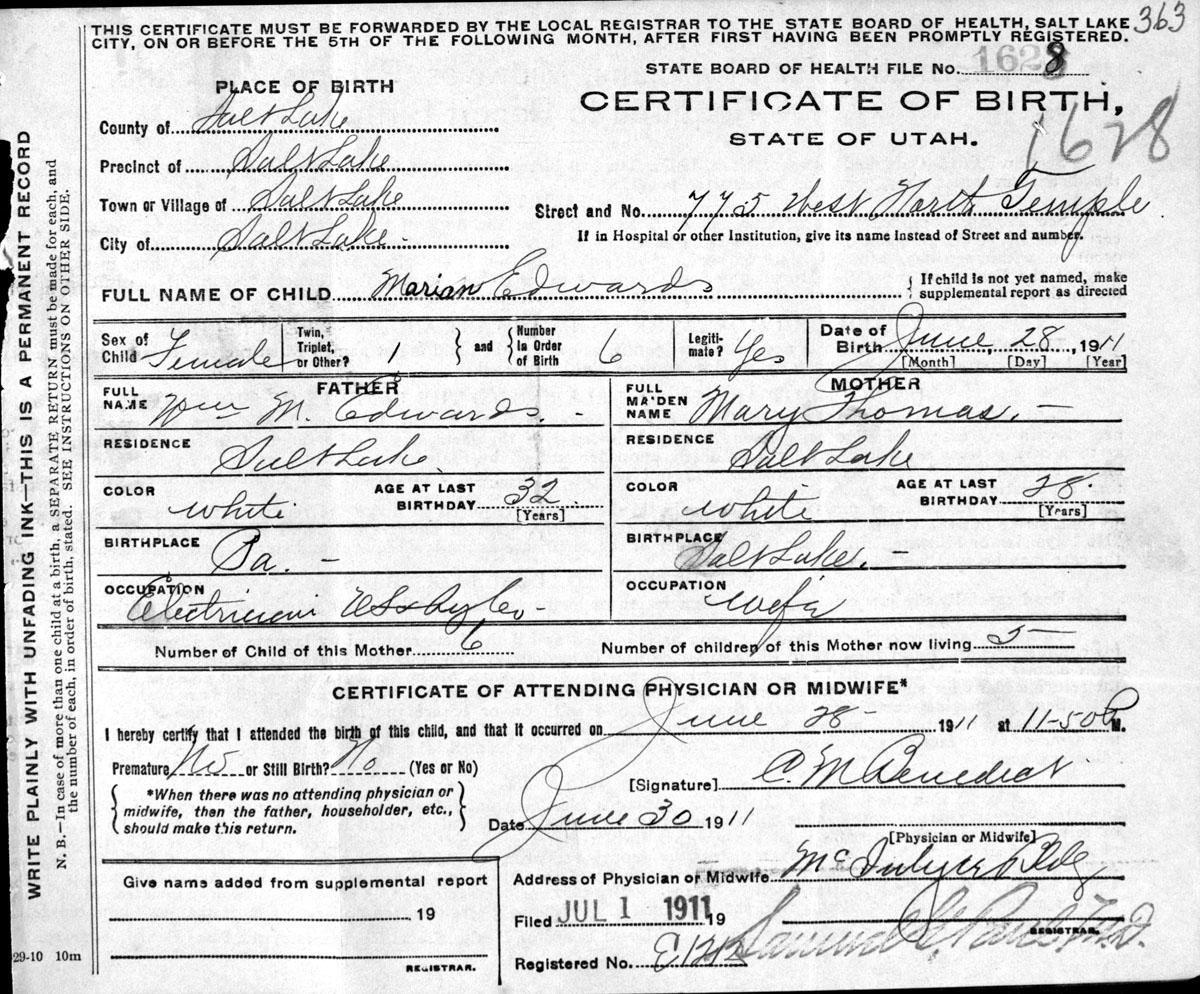 THIS CERTIFICATE MUST BE FORWARDED BY THE LOCAL REGISTRAR TO THE STATE BOARD OF HEALTH, SALT LAKE 363
CITY, ON OR BEFORE THE 5TH OF THE FOLLOWING MONTH, AFTER FIRST HAVING BEEN PROMPTLY REGISTERED.
STATE BOARD OF HEALTH FILE No. 1628
CERTIFICATE OF BIRTH,
STATE OF UTAH.
1628
PLACE OF BIRTH
County of Salt Lake
Precinct of Salt Lake
Town or Village of Salt Lake
City of Salt Lake.
Street and No. 775 West North Temple
If in Hospital or other Institution, give its name instead of Street and number.
FULL NAME OF CHILD Marian Edwards
If child is not yet named, make
supplemental report as directed
Sex of Child Female
Twin, Triplet, or Other? 1
and
Number in Order of Birth 6
Legiti-mate? Yes
Date of Birth June, 28, 1911
[Month] [Day] [Year]
FATHER
FULL NAME Wm M. Edwards. -
RESIDENCE Salt Lake.
COLOR White
AGE AT LAST BIRTHDAY 32
[Years]
BIRTHPLACE Pa. -
OCCUPATION Electrician
MOTHER
FULL MAIDEN NAME Mary Thomas. -
RESIDENCE Salt Lake
COLOR White
AGE AT LAST BIRTHDAY 28.
[Years]
BIRTHPLACE Salt Lake. -
OCCUPATION Wife
Number of Child of this Mother 6
Number of children of this Mother now living 5 -
CERTIFICATE OF ATTENDING PHYSICIAN OR MIDWIFE*
I hereby certify that I attended the birth of this child, and that it occurred on June 28- 1911 at 11-50 P M.
Premature No or Still Birth? No (Yes or No)
*When there was no attending physician or
midwife, then the father, householder, etc.,
should make this return.
[Signature] C. M. Benedict
Date June 30 1911
[Physician or Midwife]
Address of Physician or Midwife McIntyre Bldg
Give name added from supplemental report
19
REGISTRAR.
Filed JUL 1 1911 19
REGISTRAR.
Registered No.
29-10 10m
WRITE PLAINLY WITH UNFADING INK—THIS IS A PERMANENT RECORD
N. B.—In case of more than one child at a birth, a SEPARATE RETURN must be made for each, and
the number of each, in order of birth, stated. SEE INSTRUCTIONS ON OTHER SIDE.